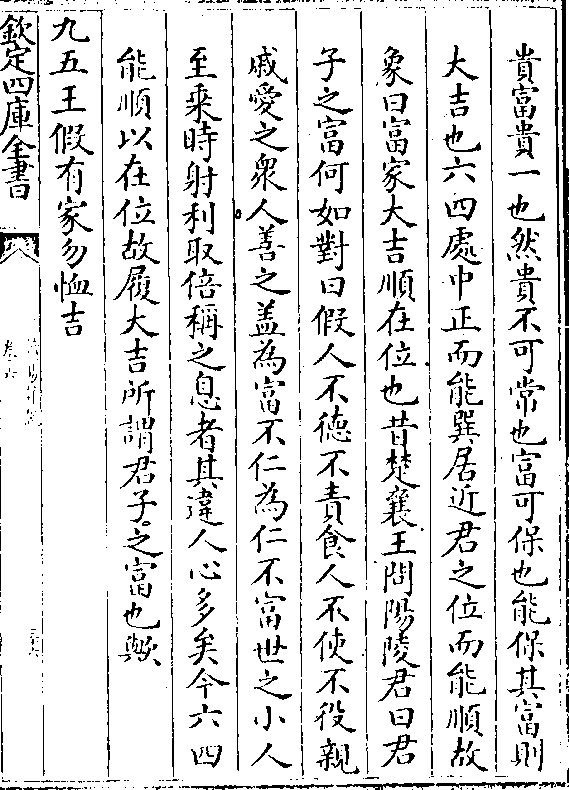 貴富貴一也然貴不可常也富可保也能保其富則
大吉也六四處中正而能巽居近君之位而能順故
象曰富家大吉順在位也昔楚襄王問陽陵君曰君
子之富何如對曰假人不德不責食人不使不役親
戚愛之衆人善之盖為富不仁為仁不富世之小人
至乘時射利取倍稱之息者其違人心多矣今六四
能順以在位故履大吉所謂君子之富也歟
九五王假有家勿恤吉
欽定四庫全書